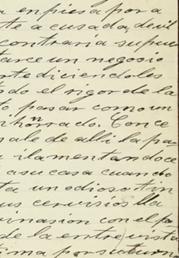 a enpiesa por a
te a cusado, devil
contraria supue
tarce un negosio
rte diciendoles
do el rigor de la
to pasar como un
ihonrrado. Conce
sale de alli la pa
ilamentandoce
asu casa cuando
ta un odioso tin
us cervisios lla
rinasion con el pa
de la entrevista
tima por su